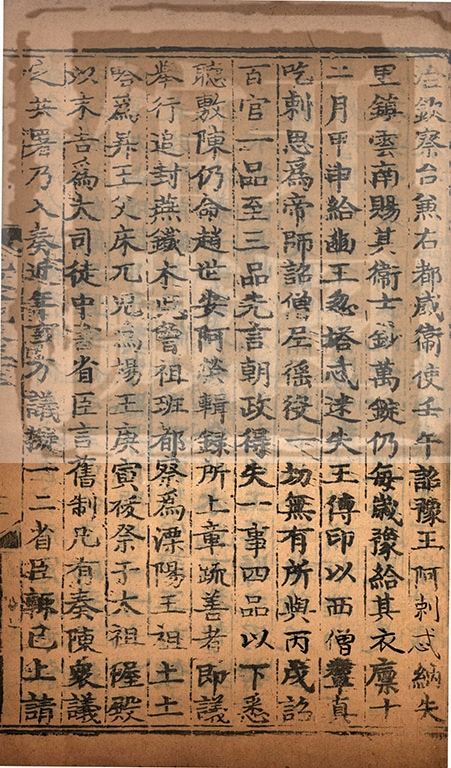 治欽察台兼右都威衛使壬午詔豫王阿剌忒納失
里鎮雲南賜其衛士鈔萬錠仍每歲豫給其衣廩十
二月甲申給豳王忽塔忒迷失王傅印以西僧輦真
吃剌思爲帝師詔僧尼徭役一切無有所與丙戌詔
百官一品至三品先言朝政得失一事四品以下悉
聽敷陳仍命趙世安阿榮輯錄所上章疏善者即議
舉行追封燕鐵木兒曾祖班都察爲溧陽王祖土土
哈爲昇王父床兀兒爲揚王庚寅祓祭于太祖幄殿
以末吉爲大司徒中書省臣言舊制凡有奏陳衆議
定共署乃入奏近年事方議擬一二省臣輒已上請